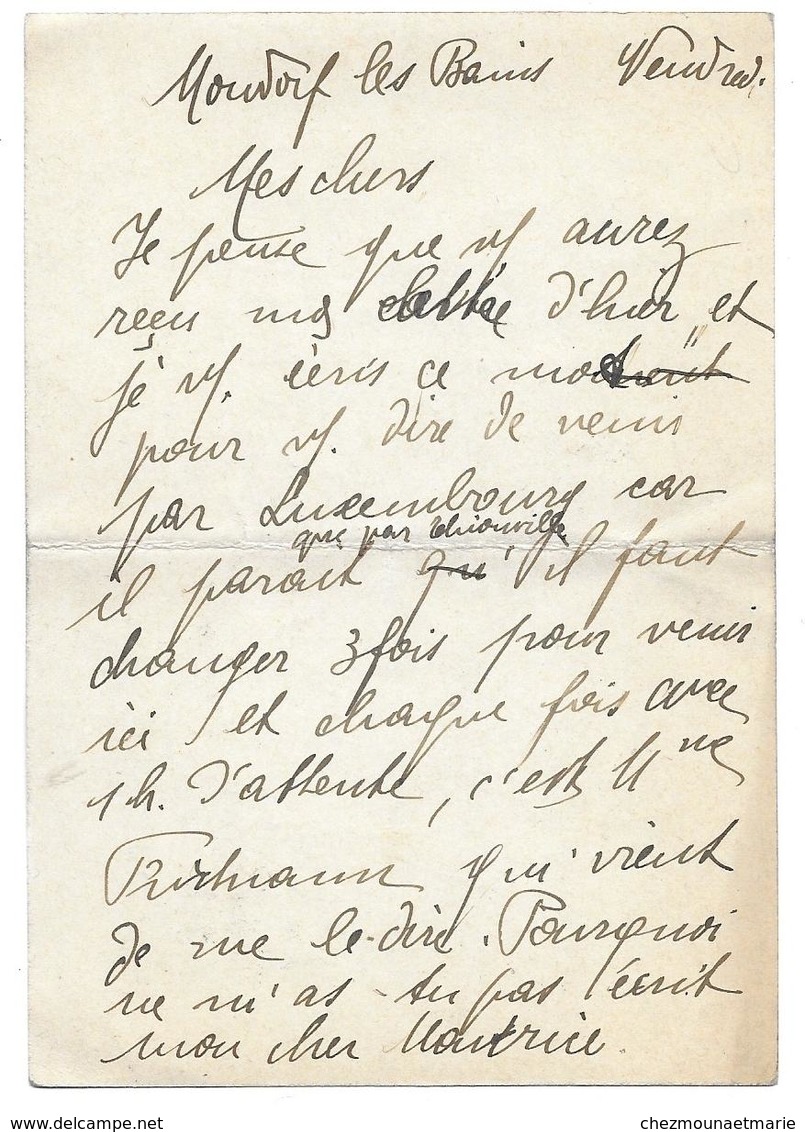 Mondorf les Bains Vendred.
Mes chers
Je pense que v/ aurez
reçu ma lettre d'hier et
je v/. écris ce mot
pour v/. dire de venir
par Luxembourg car
que par Thionville
il parait qu'il faut
changer 3 fois pour venir
ici et chaque fois avec
1 h. d'attente, c'est Mme
qui vient
de me le dire. Pourquoi
ne m'as-tu pas écrit
mon cher Maurice.
delcampe.net
chezmounaetmarie